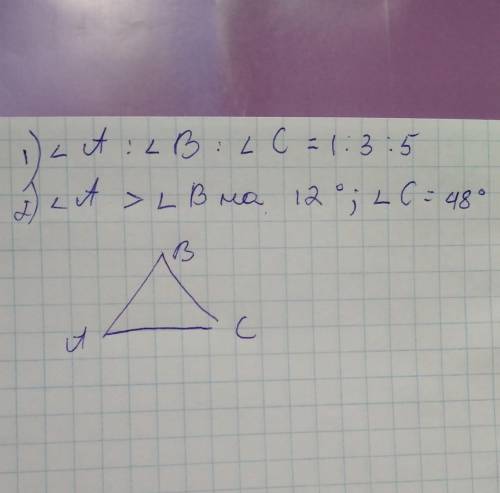 1) ∠A : ∠B : ∠C = 1 : 3 : 5
2) ∠A > ∠B на 12°; ∠C = 48°
B
A C